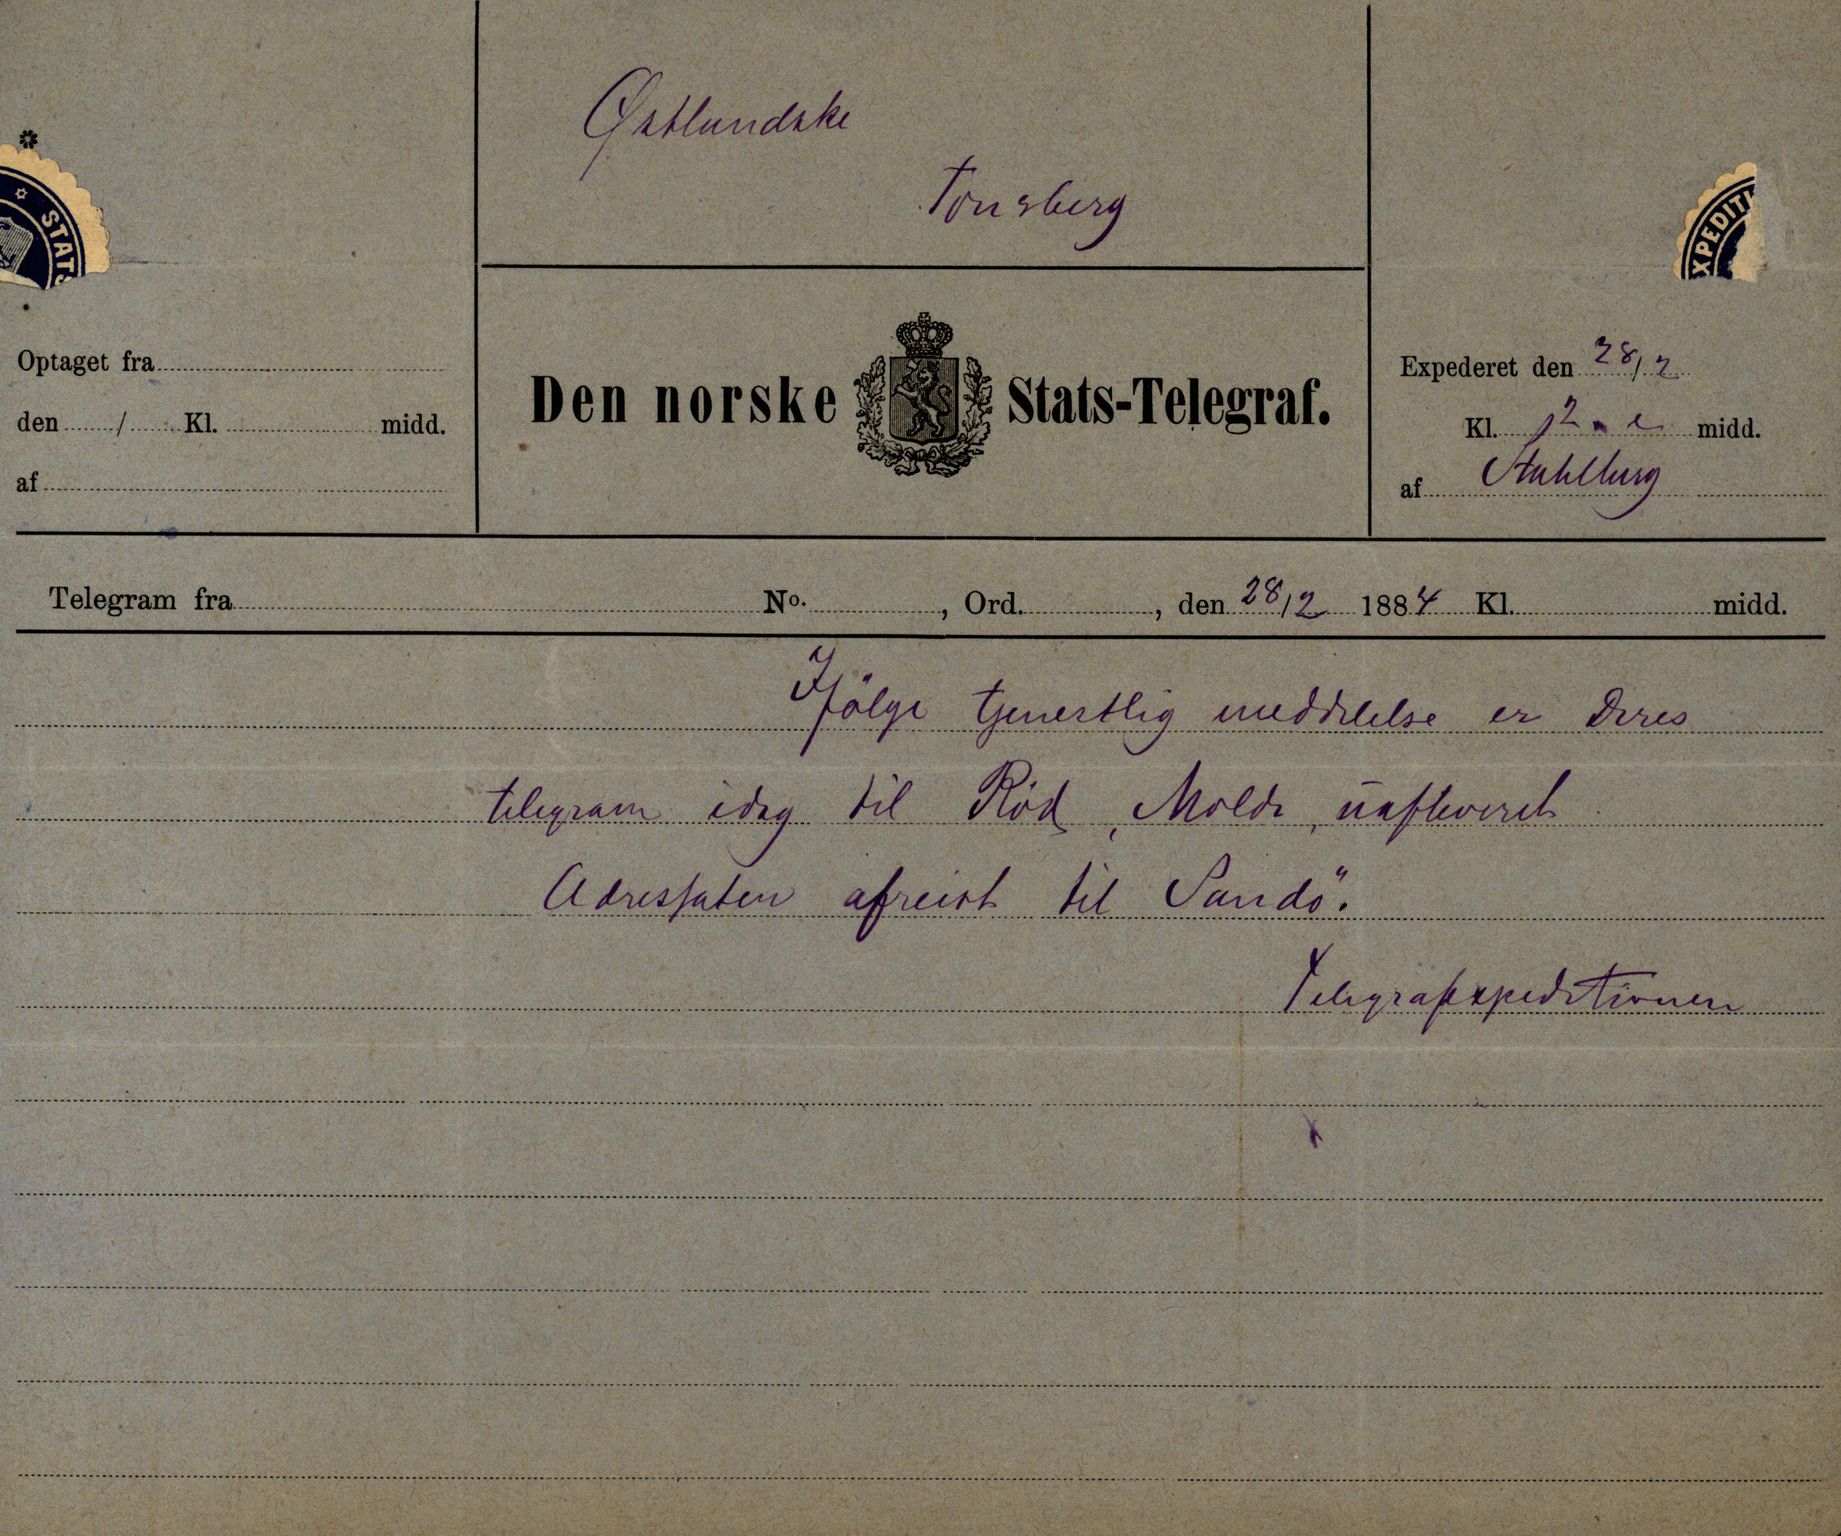 Østlandske
Tønsberg
STATS
XPEDITI
Optaget fra
den / Kl. midd.
af
Den norske Stats-Telegraf.
Expederet den 28/2
Kl. 12 midd.
af
Telegram fra No. , Ord. , den 28/2 1884 Kl. midd.
Ifölge tjenestlig meddelelse er Deres
telegram idag til Röd, Molde, uafleveret.
Adressaten afreist til Sandö.
Telegrafexpeditionen